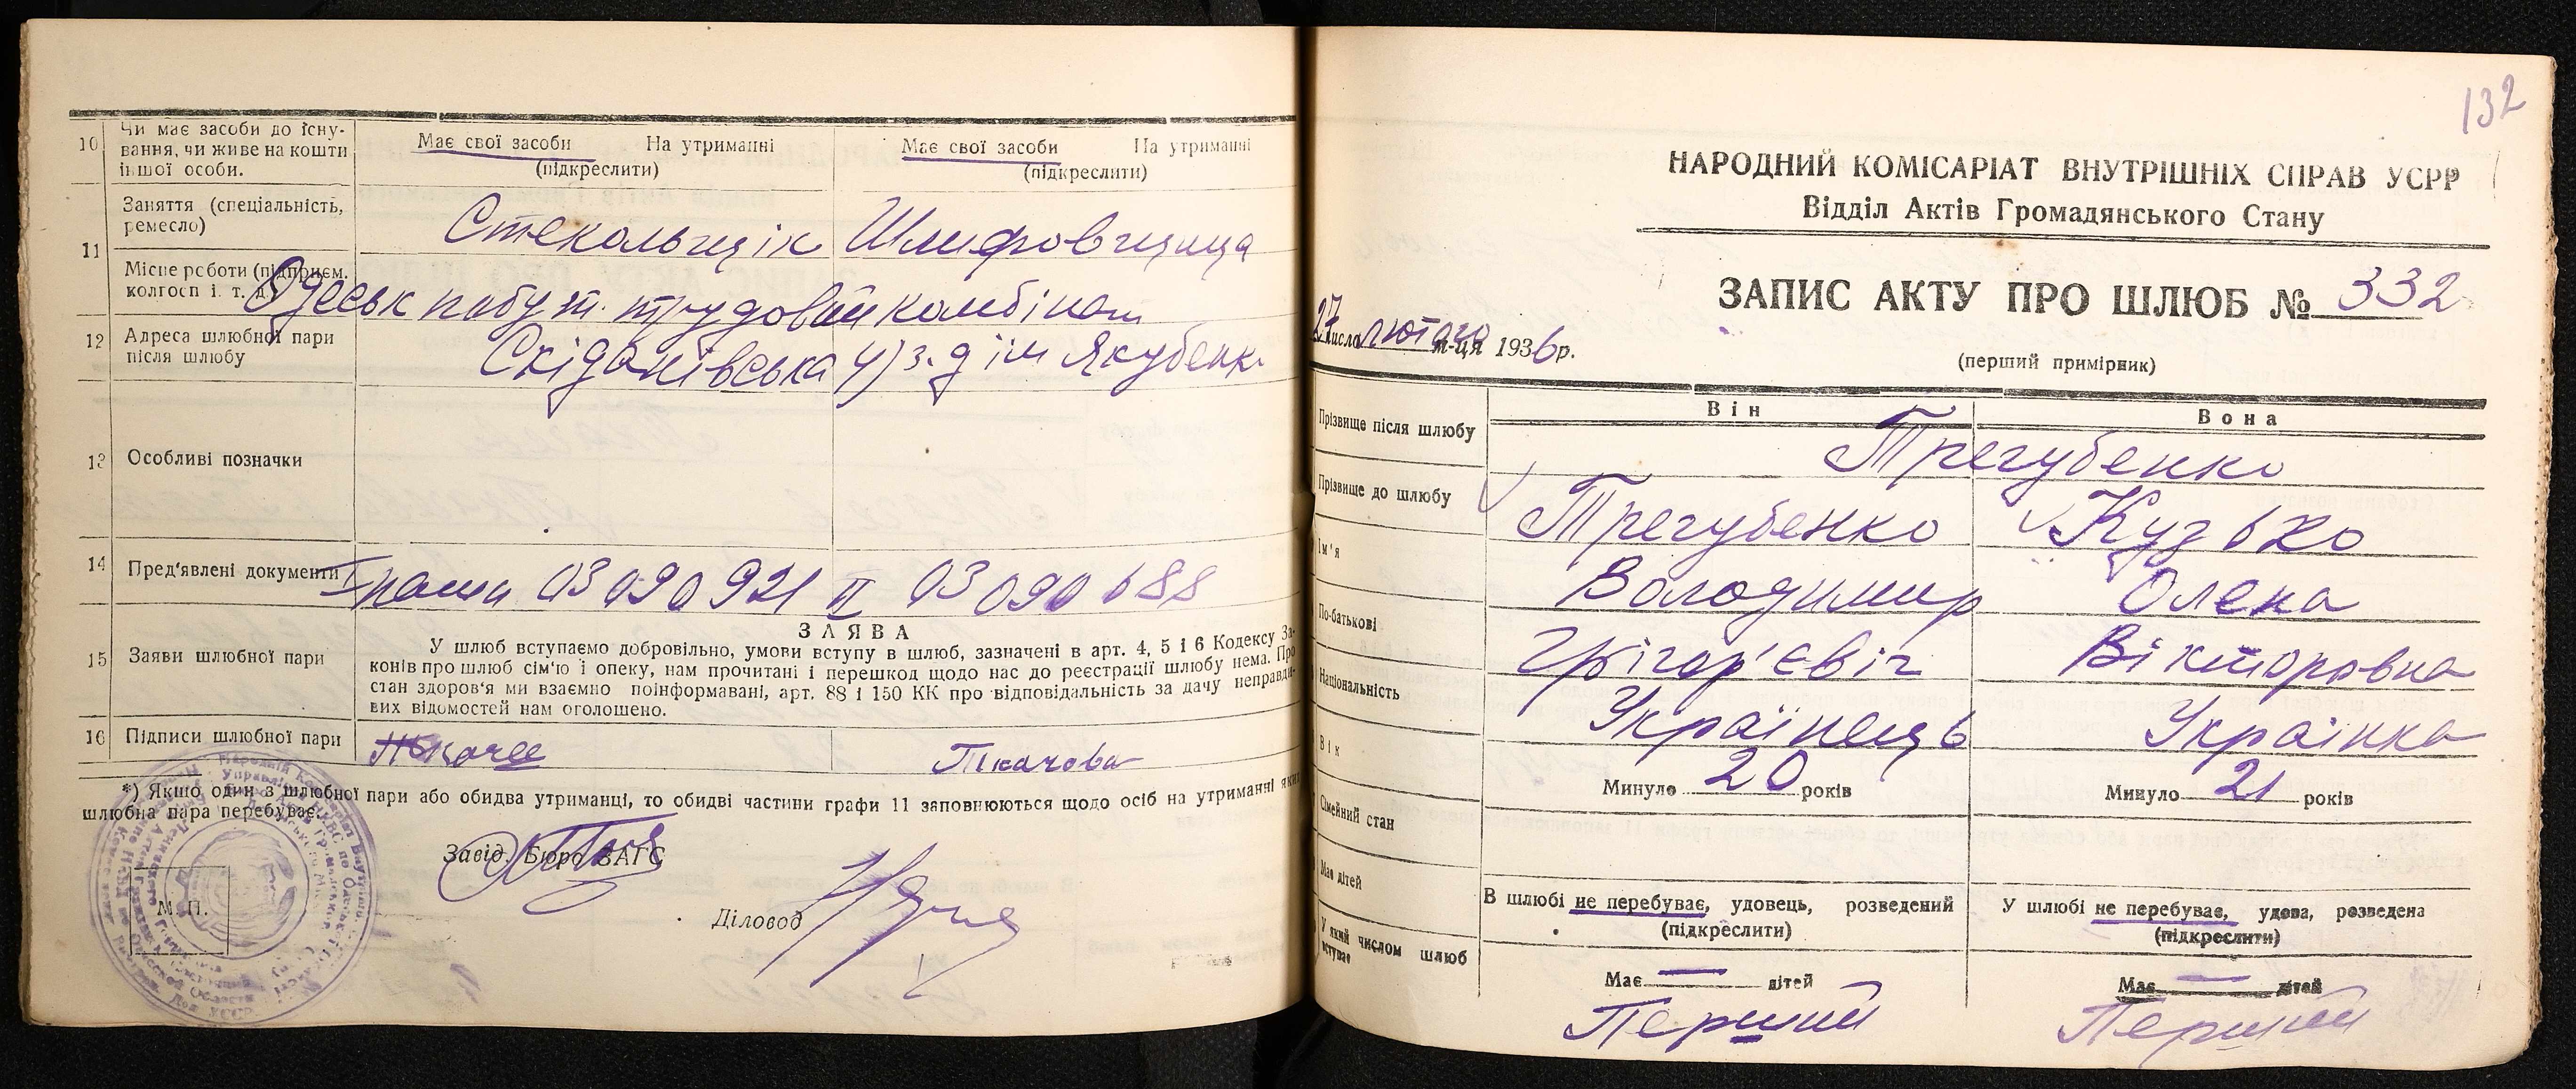 10
Чи має засоби до існу-
вання, чи живе на кошти
іншої особи.
Має свої засоби На утриманні
(підкреслити)
Має свої засоби На утриманні
(підкреслити)
11
Заняття (спеціальність,
ремесло)
Стекольщік Шлифовщица
Місце роботи (підприєм.
колгосп і. т. д.)
Одеськ побут. трудовий комбінат
12
Адреса шлюбної пари
після шлюбу
Скіданівська 4) з. дім Якубенк
13
Особливі позначки
14
Пред'явлені документи
I паши 03090921 II 03090688
15
Заяви шлюбної пари
ЗАЯВА
У шлюб вступаємо добровільно, умови вступу в шлюб, зазначені в арт. 4, 5 і 6 Кодексу За-
конів про шлюб сім'ю і опеку, нам прочитані і перешкод щодо нас до реєстрації шлюбу нема. Про
стан здоров'я ми взаємно поінформавані, арт. 88 і 150 КК про відповідальність за дачу неправди-
вих відомостей нам оголошено.
16
Підписи шлюбної пари
Ткачова
*) Якщо один з шлюбної пари або обидва утриманці, то обидві частини графи 11 заповнюються щодо осіб на утриманні яких
шлюбна пара перебуває.
Завід. Бюро ЗАГС
Діловод
М. П.
132
НАРОДНИЙ КОМІСАРІАТ ВНУТРІШНІХ СПРАВ УСРР
Відділ Актів Громадянського Стану
ЗАПИС АКТУ ПРО ШЛЮБ № 332
27 числа лютого м-ця 1936 р.
(перший примірник)
Він Вона
Прізвище після шлюбу
Трегубенко
Прізвище до шлюбу
Трегубенко Кузько
Ім'я
Володимир Олена
По-батькові
Грігор'євіч Вікторовна
Національність
Українець Українка
Вік
Минуло 20 років Минуло 21 років
Сімейний стан
В шлюбі не перебуває, удовець, розведений
(підкреслити)
У шлюбі не перебуває, удова, розведена
(підкреслити)
Має дітей
Має — дітей Має — дітей
У який числом шлюб
вступає
Перший Перший